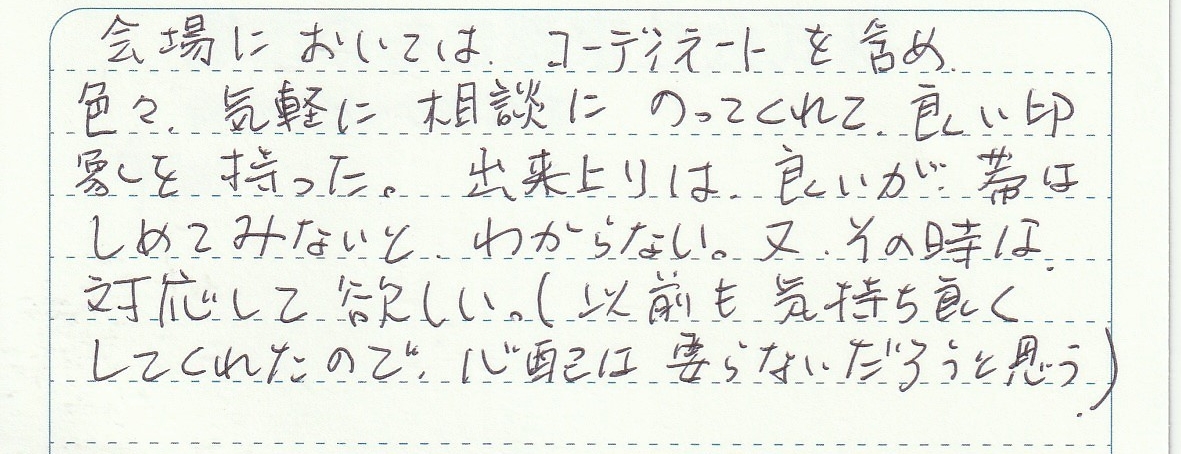 会場においては、コーディネートを含め、
色々、気軽に相談にのってくれて、良い印
象を持った。出来上りは、良いが、帯は
しめてみないと、わからない。又、その時は、
対応して欲しい。(以前も気持ち良く
してくれたので、心配は要らないだろうと思う。)